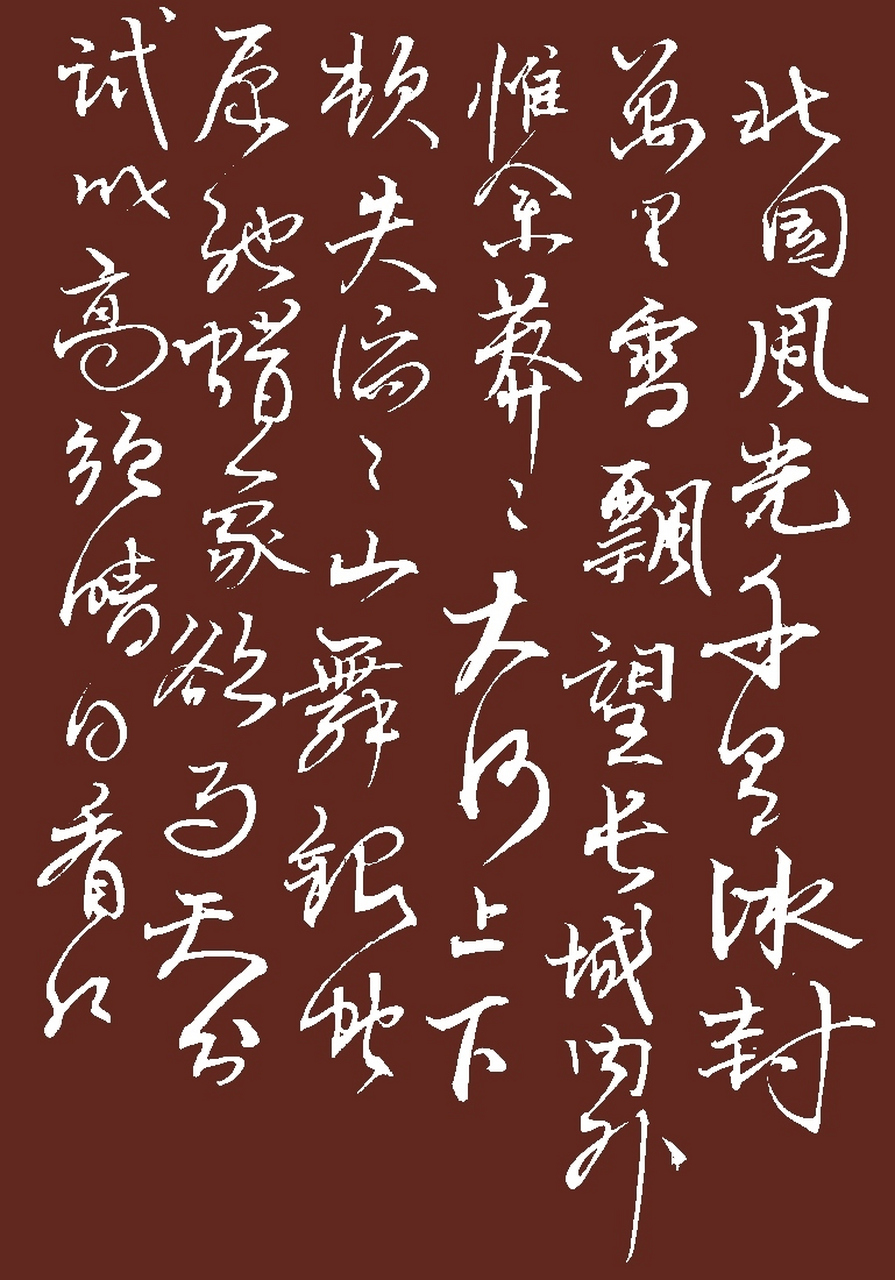 北国風光千里冰封
萬里雪飄望长城内外
惟余莽〻大河上下
顿失滔〻山舞银蛇
原驰蜡象欲与天公
試比高须晴日看红